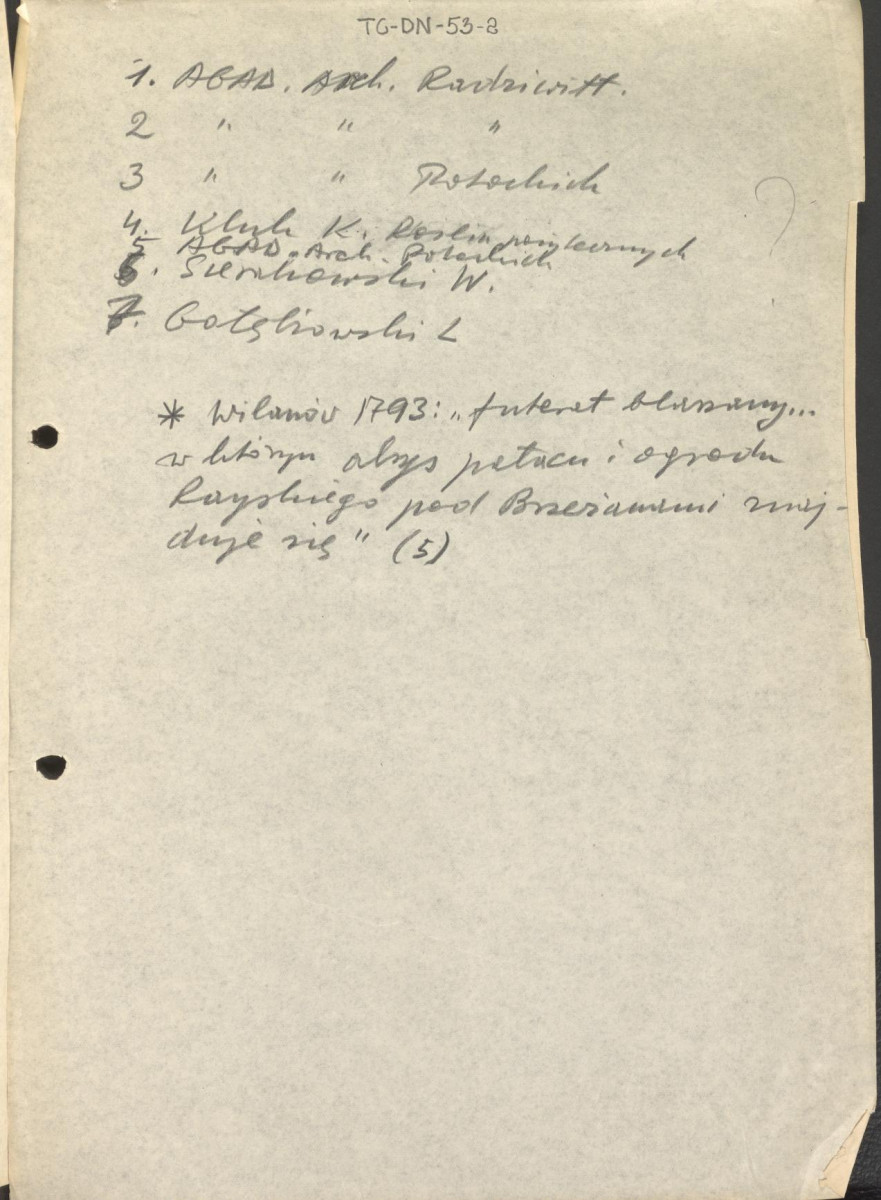 TG-DN-53-2
1. AGAD. Arch. Radziwiłł.
2 " " "
3 " " Potockich
4. Kluk K. Roślin
5 AGAD. Arch. Potockich
6. Sierakowski W.
7. Gołębiowski Ł
* Wilanów 1793: "futerał blaszany...
w którym abrys pałacu i ogrodu
Rayskiego pod Brzeżanami znaj-
duje się" (5)
?